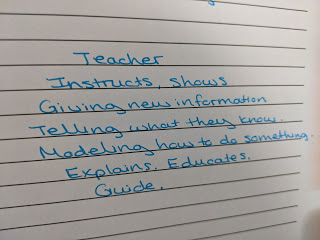 Teacher
Instructs, shows
Giving new information
Telling what they know.
Modeling how to do something.
Explains. Educates.
Guide.